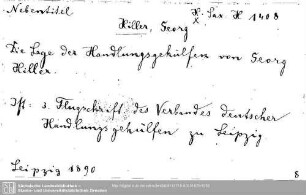 Nebentitel
H. Sax H 1408
Hiller, Georg
Die Lage der Handlungsgehülfen von Georg
Hiller.
Ist: 3. Flugschrift des Verbandes deutscher
Handlungsgehülfen zu Leipzig
Leipzig 1890
8